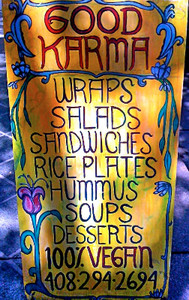 GOOD
KARMA
WRAPS
SALADS
SANDWICHES
RICE PLATES
HUMMUS
SOUPS
DESSERTS
100% VEGAN
408-294-2694